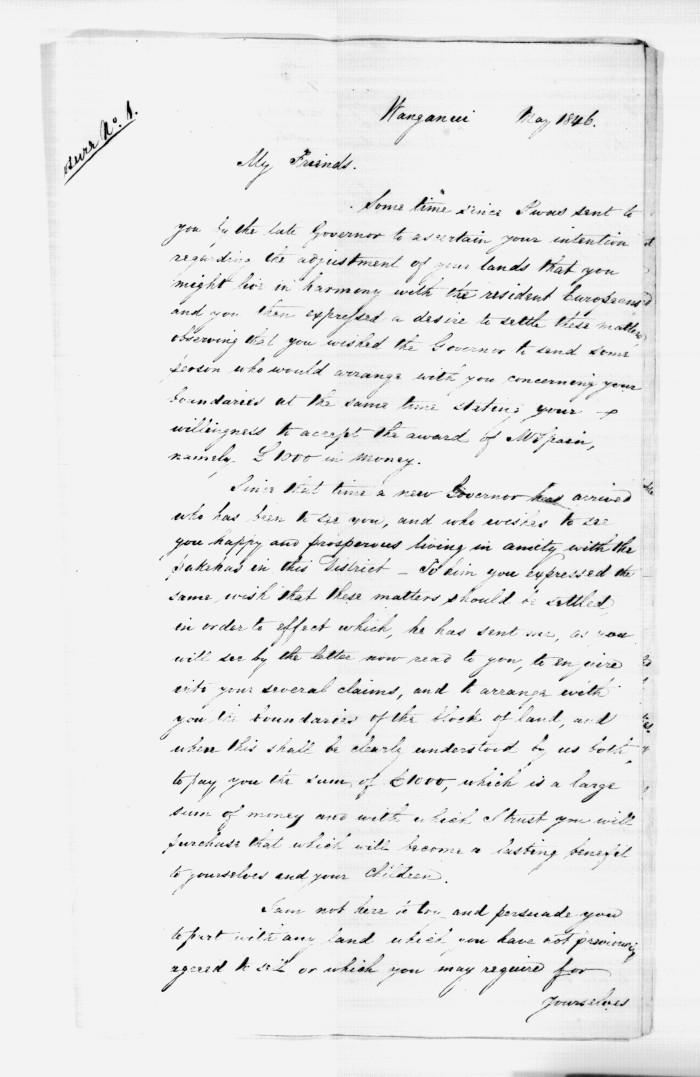 osure No. 1.
Wanganui May 1846.
My Friends.
Some time since I was sent to
you by the late Governor to ascertain your intention
regarding the adjustment of your lands that you
might live in harmony with the resident Europeans
and you then expressed a desire to settle these matters
observing that you wished the Governor to send some
person who would arrange with you concerning your
boundaries at the same time stating your
willingness to accept the award of Mr Spain,
namely £1000 in money.
Since that time a new Governor has arrived
who has been to see you, and who wishes to see
you happy and prosperous living in amity with the
pakehas in this District — To him you expressed the
same wish that these matters should be settled,
in order to effect which, he has sent me, as you
will see by the letter now read to you, to enquire
into your several claims, and to arrange with
you the boundaries of the block of land, and
when this shall be clearly understood by us both,
to pay you the sum of £1000, which is a large
sum of money and with which I trust you will
purchase that which will become a lasting benefit
to yourselves and your Children.
I am not here to try and persuade you
to part with any land which you have not previously
agreed to sell or which you may require for
Yourselves